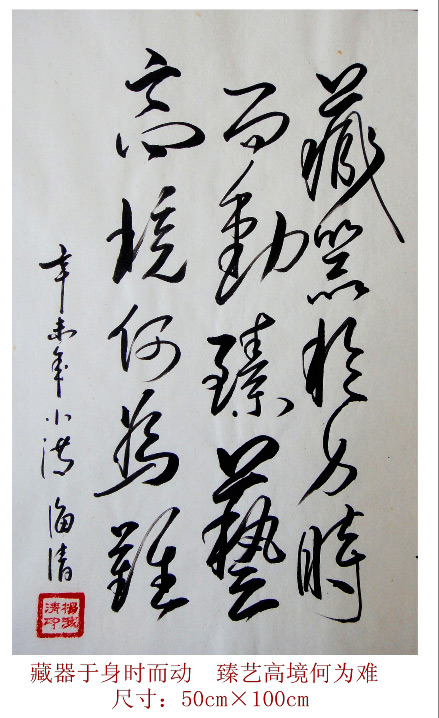 藏器於身時
而動臻藝
高境何為難
辛未年小满 海清
楊海清印
藏器于身时而动　臻艺高境何为难
尺寸：50cm×100cm